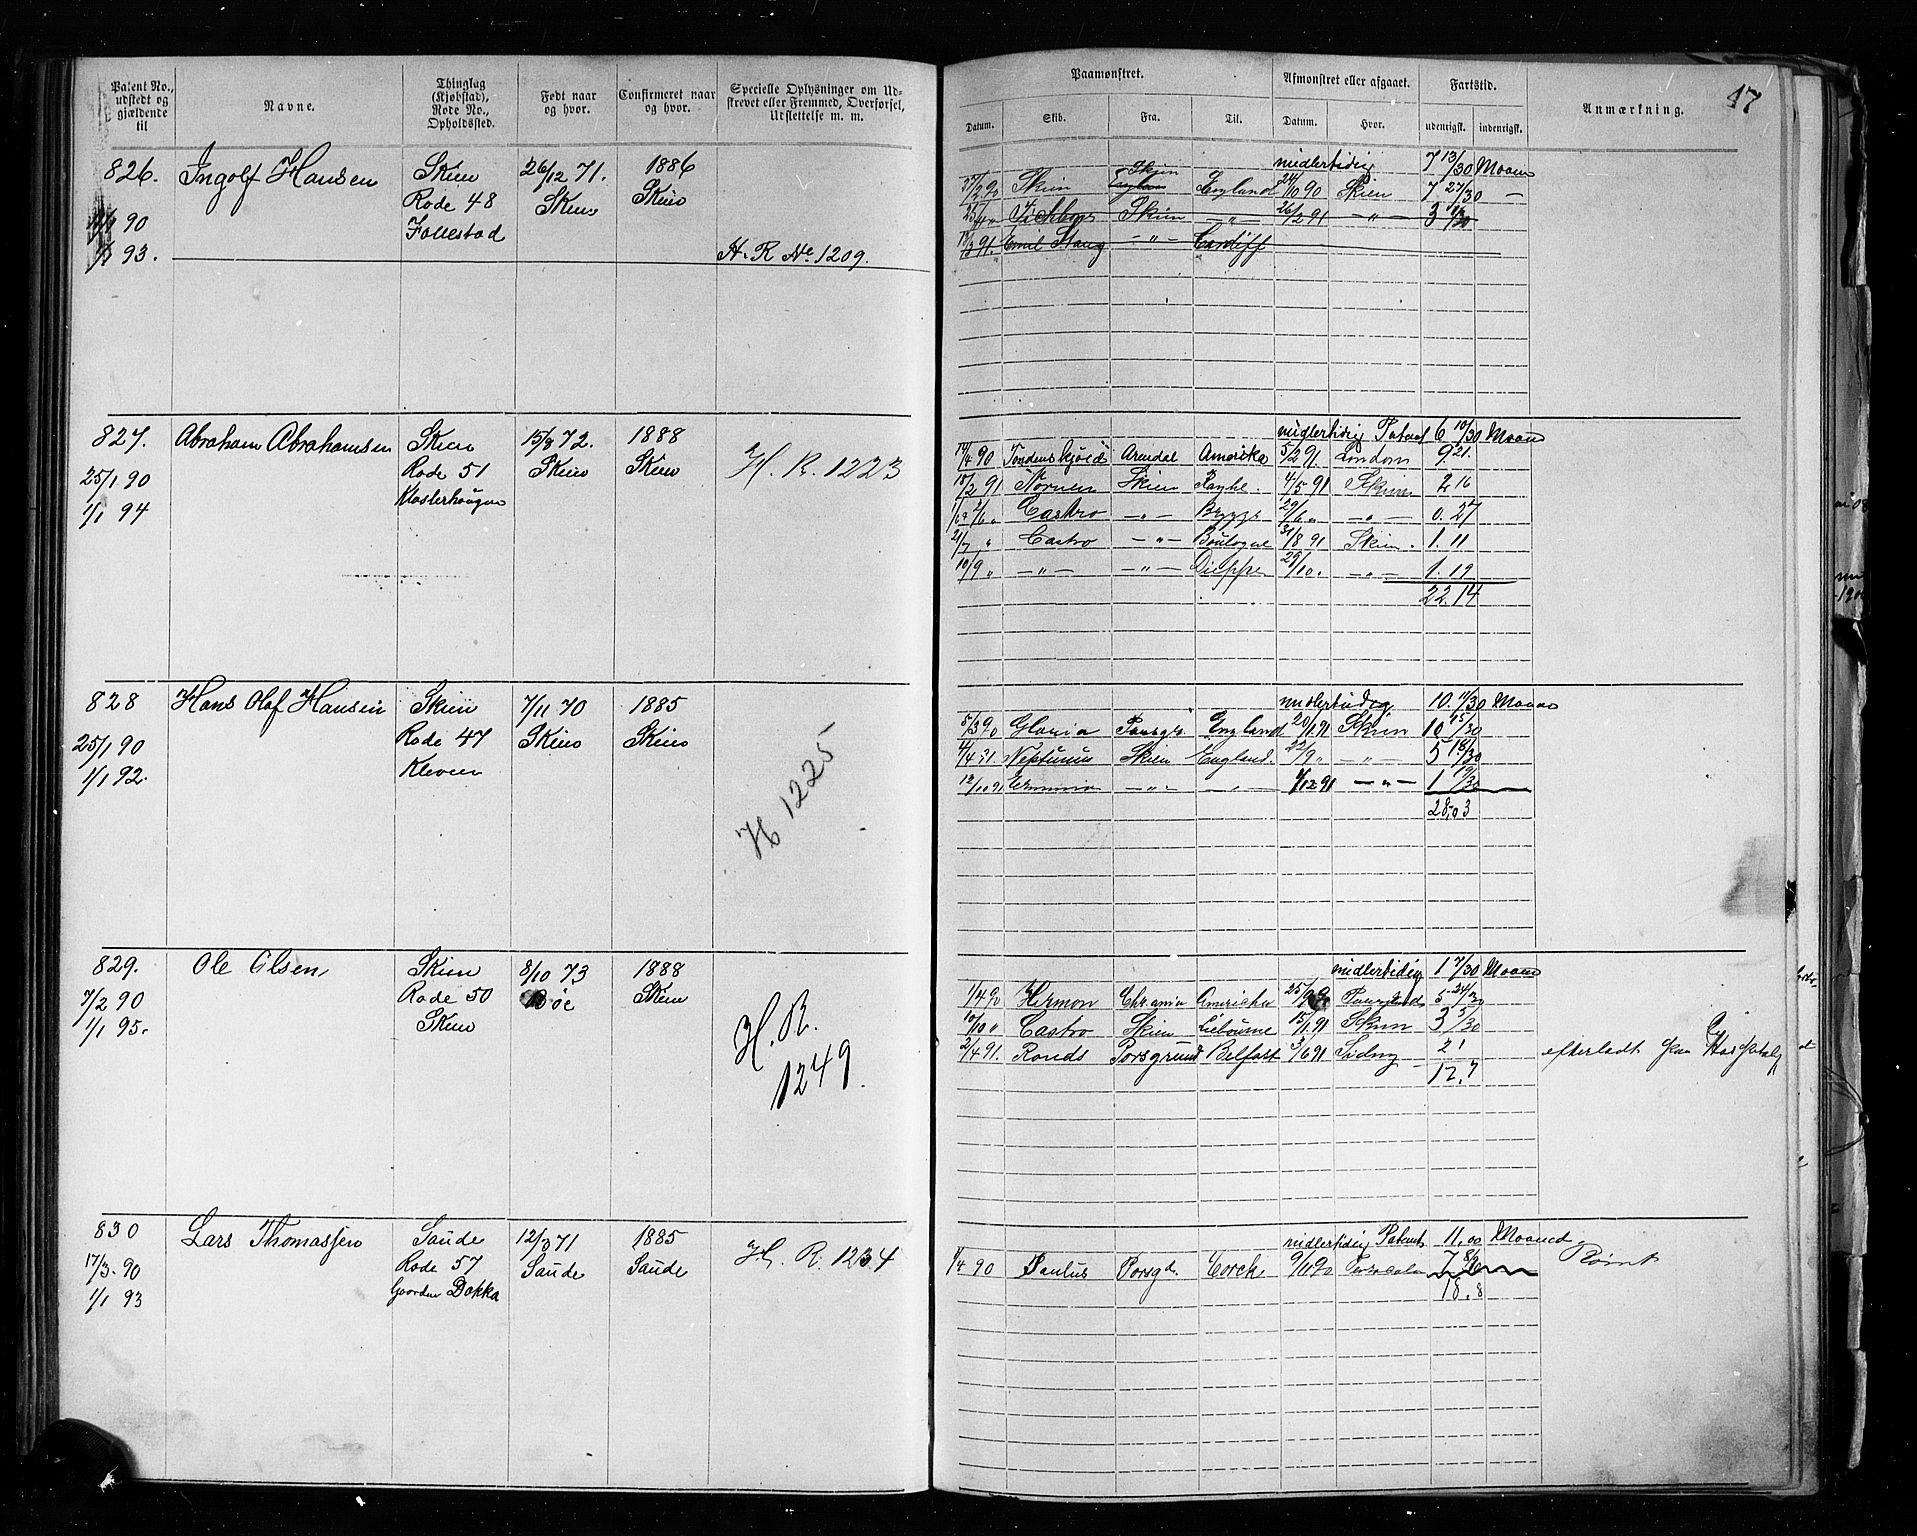 Patent No., udstedt og gjældende til
Navne.
Thinglag (Kjøbstad), Rode No., Opholdssted.
Født naar og hvor.
Confirmeret naar og hvor.
Specielle Oplysninger om Udskrevet eller Fremmed, Overførsel, Udslettelse m. m.
Paamønstret.
Afmønstret eller afgaaet.
Fartstid.
Anmærkning.
17
Datum. Skib. Fra. Til. Datum. Hvor. udenrigsk. indenrigsk.
826. Ingolf Hansen Skien 26/12 71. 1886
90 Rode 48 Skien Skien
1/1 93. Follestad
H. R No 1209.
midlertidig 7 13/30 Maaned
Skien
27/2 90 Skien England 24/10 90 Skien 7 27/30 —
Skien — " — 26/2 91 — " — 3
13/3 91. Emil Stang — " — Cardiff
827. Abraham Abrahamsen Skien 15/8 72. 1888
25/1 90 Rode 51 Skien Skien H. R. 1223
1/1 94 Klosterhougen
midlertidig Patent 6 10/30 Maaned
14/4 90 Tordenskjold Arendal Amerika 5/2 91. London 9 21.
18/2 91 Nornen Skien 4/5 91 Skien 2 16
Castro — " — 29/6 " — " — 0. 27
21/7 " Castro — " — Boulogne 31/8 91 Skien. 1. 11
10/9 " — " — — " — Dieppe 29/10. — " — 1. 19
22. 14
828 Hans Olaf Hansen Skien 7/11 70 1885
25/1 90 Rode 47 Skien Skien
1/1 92. Kleven
H 1225
midlertidig 10. 11/30 Maaned
5/3 90 Gloria Porsgr. England 20/1 91 Skien 10 15/30
4/4 91. Neptunus Skien England. 22/9 " — " — 5 18/30
12/10 91 Erminia — " — — " — 1/12 91 — " — 1 19/30
28,03
829. Ole Olsen Skien 8/10 73 1888
7/2 90 Rode 50 Bøe Skien
1/1 95. Skien
H. R. 1249
midlertidig 1 7/30 Maaned
1/4 90 Hermon Chr.ania Amerika 5 24/30
10/10 " Castro Skien Liebourne 15/1 91 Skien 3 5/30
2/4 91. Rouds Porsgrund Belfast 3/6 91 Sidny 2 1 efterladt paa Hospital
12, 7
830 Lars Thomassen Saude 12/3 71 1885
17/3 90 Rode 57 Saude Saude H. R. 1234
1/1 93 Gaarden Dokka
midlertidig Patent 11,00 Maaned
1/4 90 Paulus Porsgd. Corck 9/11 90 Pensacola 7 8/30 Rømt
18. 8